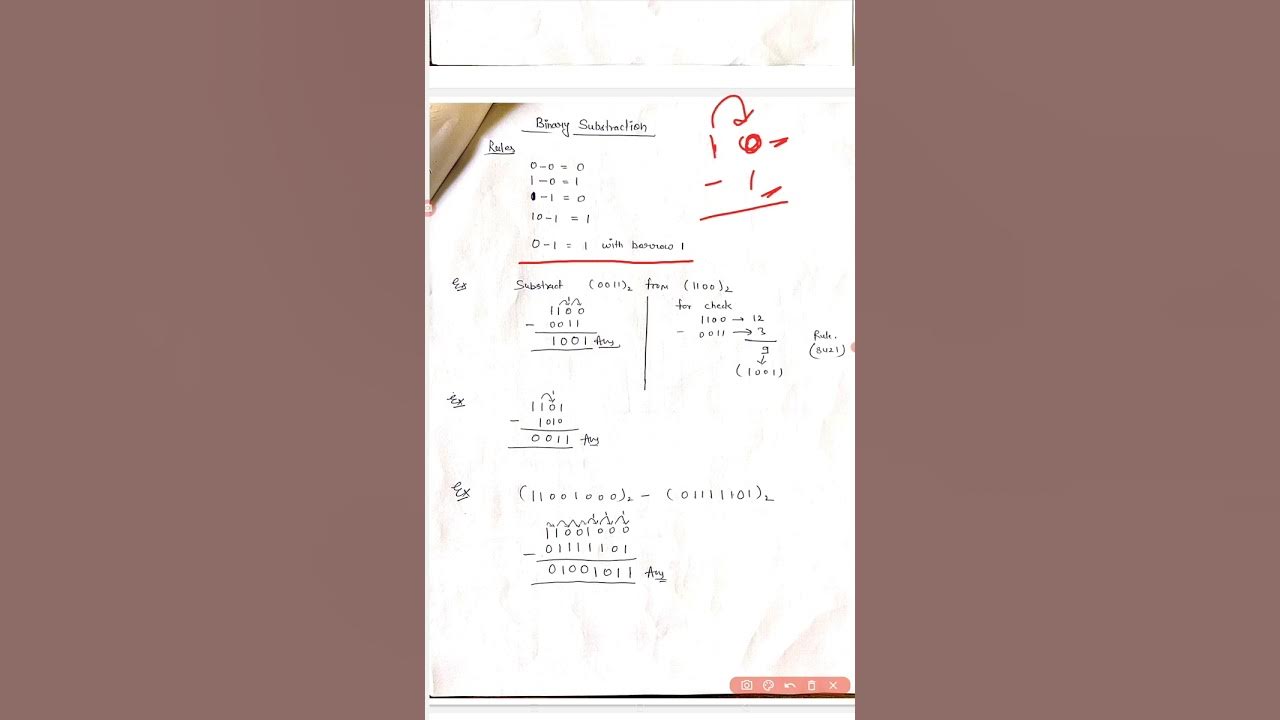 Binary Substraction
Rules
0-0 = 0
1-0 = 1
1-1 = 0
10-1 = 1
0-1 = 1 with borrow 1
1 0
- 1
Ex Substract (0011)₂ from (1100)₂
1100
- 0011
1001 Ans
for check
1100 → 12
- 0011 → 3
9
↓
(1001)
Rule.
(8421)
Ex
1
1101
- 1010
0011 - Ans
Ex (11001000)₂ - (01111101)₂
11001000
- 01111101
01001011 Ans